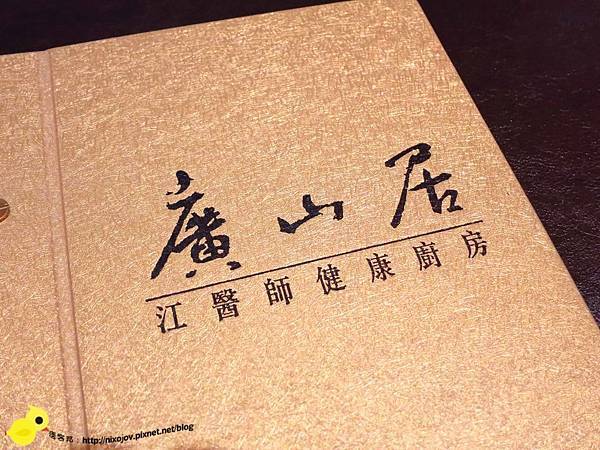 廣山居
江醫師健康廚房
痞客邦：http://nixojov.pixnet.net/blog